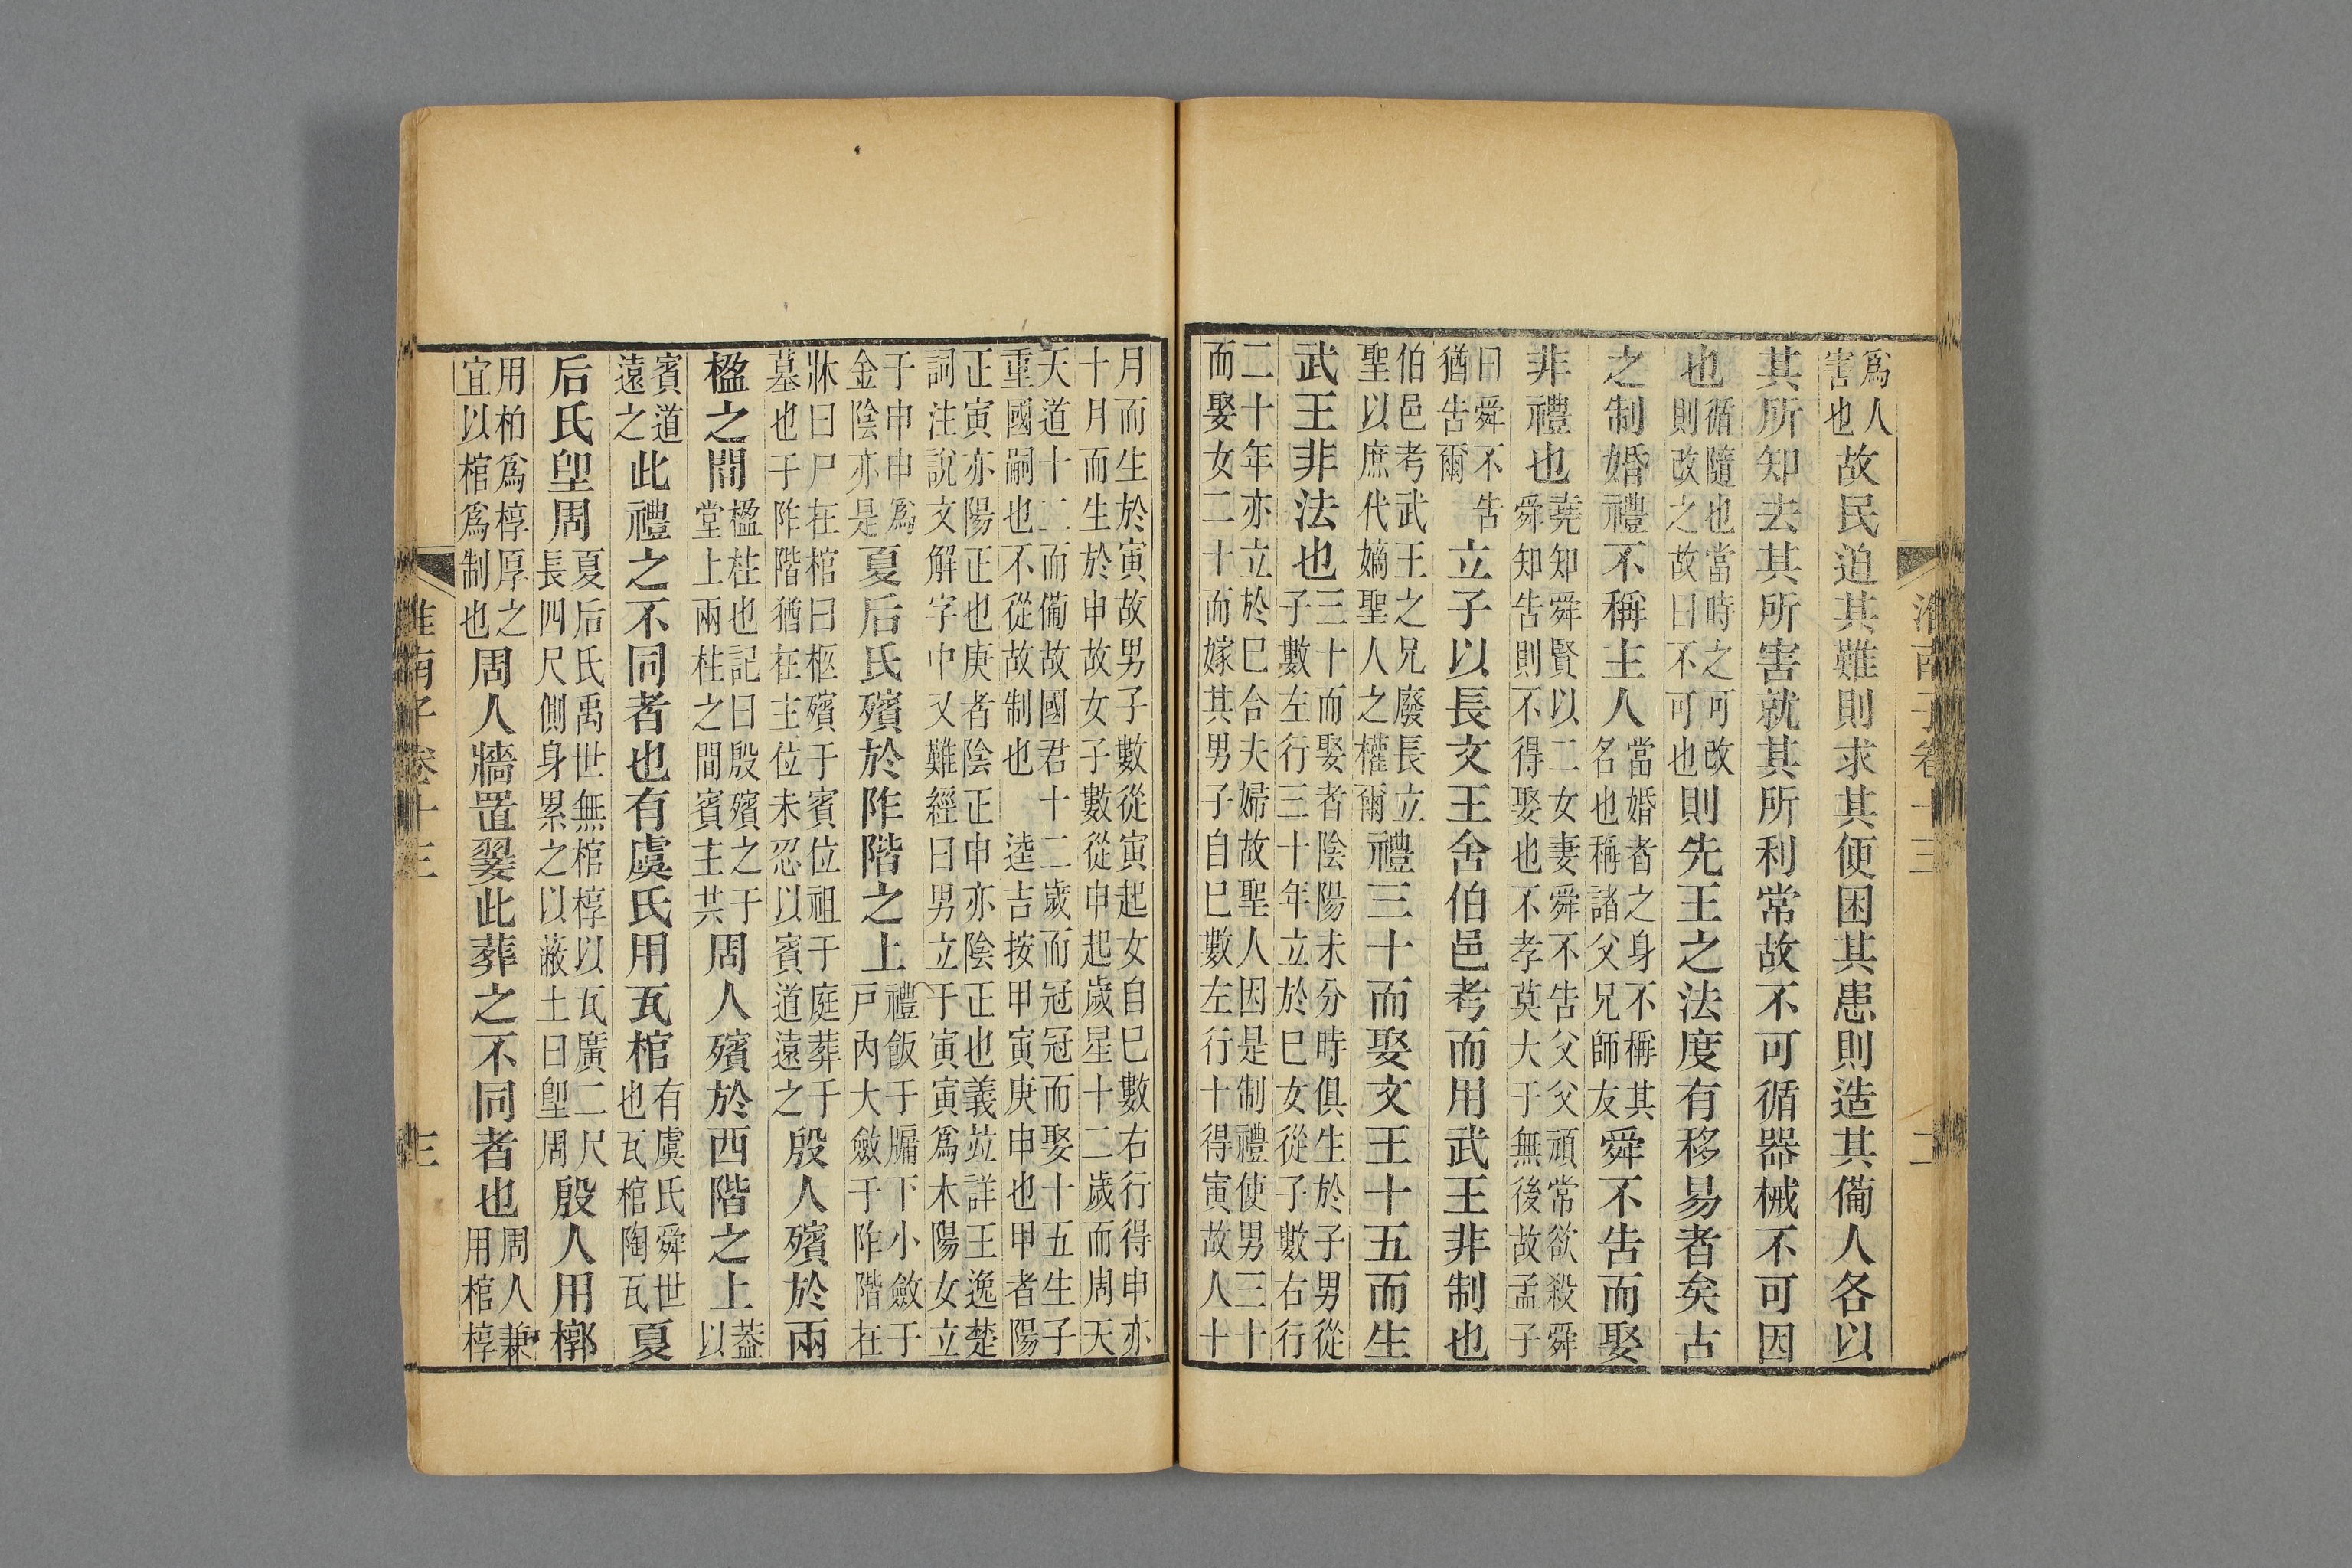 爲人害也故民迫其難則求其便困其患則造其備人各以
其所知去其所害就其所利常故不可循器械不可因
也循隨也當時之可改則改之故曰不可也則先王之法度有移易者矣古
之制婚禮不稱主人當婚者之身不稱其名也稱諸父兄師友舜不告而娶
非禮也堯知舜賢以二女妻舜不告父父頑常欲殺舜舜知告則不得娶也不孝莫大于無後故孟子
曰舜不告猶告爾立子以長文王舍伯邑考而用武王非制也
伯邑考武王之兄廢長立聖以庶代嫡聖人之權爾禮三十而娶文王十五而生
武王非法也三十而娶者陰陽未分時俱生於子男從子數左行三十年立於巳女從子數右行
二十年亦立於巳合夫婦故聖人因是制禮使男三十而娶女二十而嫁其男子自巳數左行十得寅故人十
月而生於寅故男子數從寅起女自巳數右行得申亦十月而生於申故女子數從申起歲星十二歲而周天
天道十二而備故國君十二歲而冠冠而娶十五生子重國嗣也不從故制也 逵吉按甲寅庚申也甲者陽
正寅亦陽正也庚者陰正申亦陰正也義竝詳王逸楚詞注說文解字中又難經曰男立于寅寅爲木陽女立
于申申爲金陰亦是夏后氏殯於阼階之上禮飯于牖下小斂于戸內大斂于阼階在
牀曰尸在棺曰柩殯于賓位祖于庭葬于墓也于阼階猶在主位未忍以賓道遠之殷人殯於兩
楹之間楹柱也記曰殷殯之于堂上兩柱之間賓主共周人殯於西階之上葢以
賓道遠之此禮之不同者也有虞氏用瓦棺有虞氏舜世也瓦棺陶瓦夏
后氏堲周夏后氏禹世無棺椁以瓦廣二尺長四尺側身累之以蔽土曰堲周殷人用槨
用柏爲椁厚之宜以棺爲制也周人牆置翣此葬之不同者也周人兼用棺椁
淮南子卷十三
二
淮南子卷十三
三